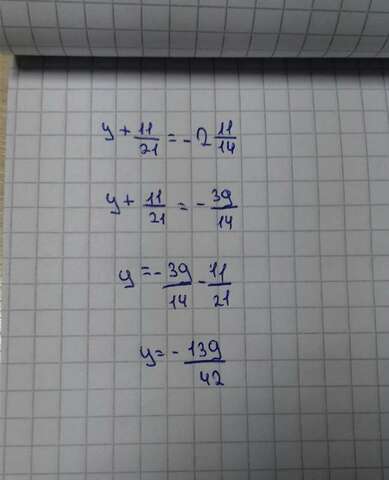 y + 11/21 = - 2 11/14
y + 11/21 = - 39/14
y = - 39/14 - 11/21
y = - 139/42